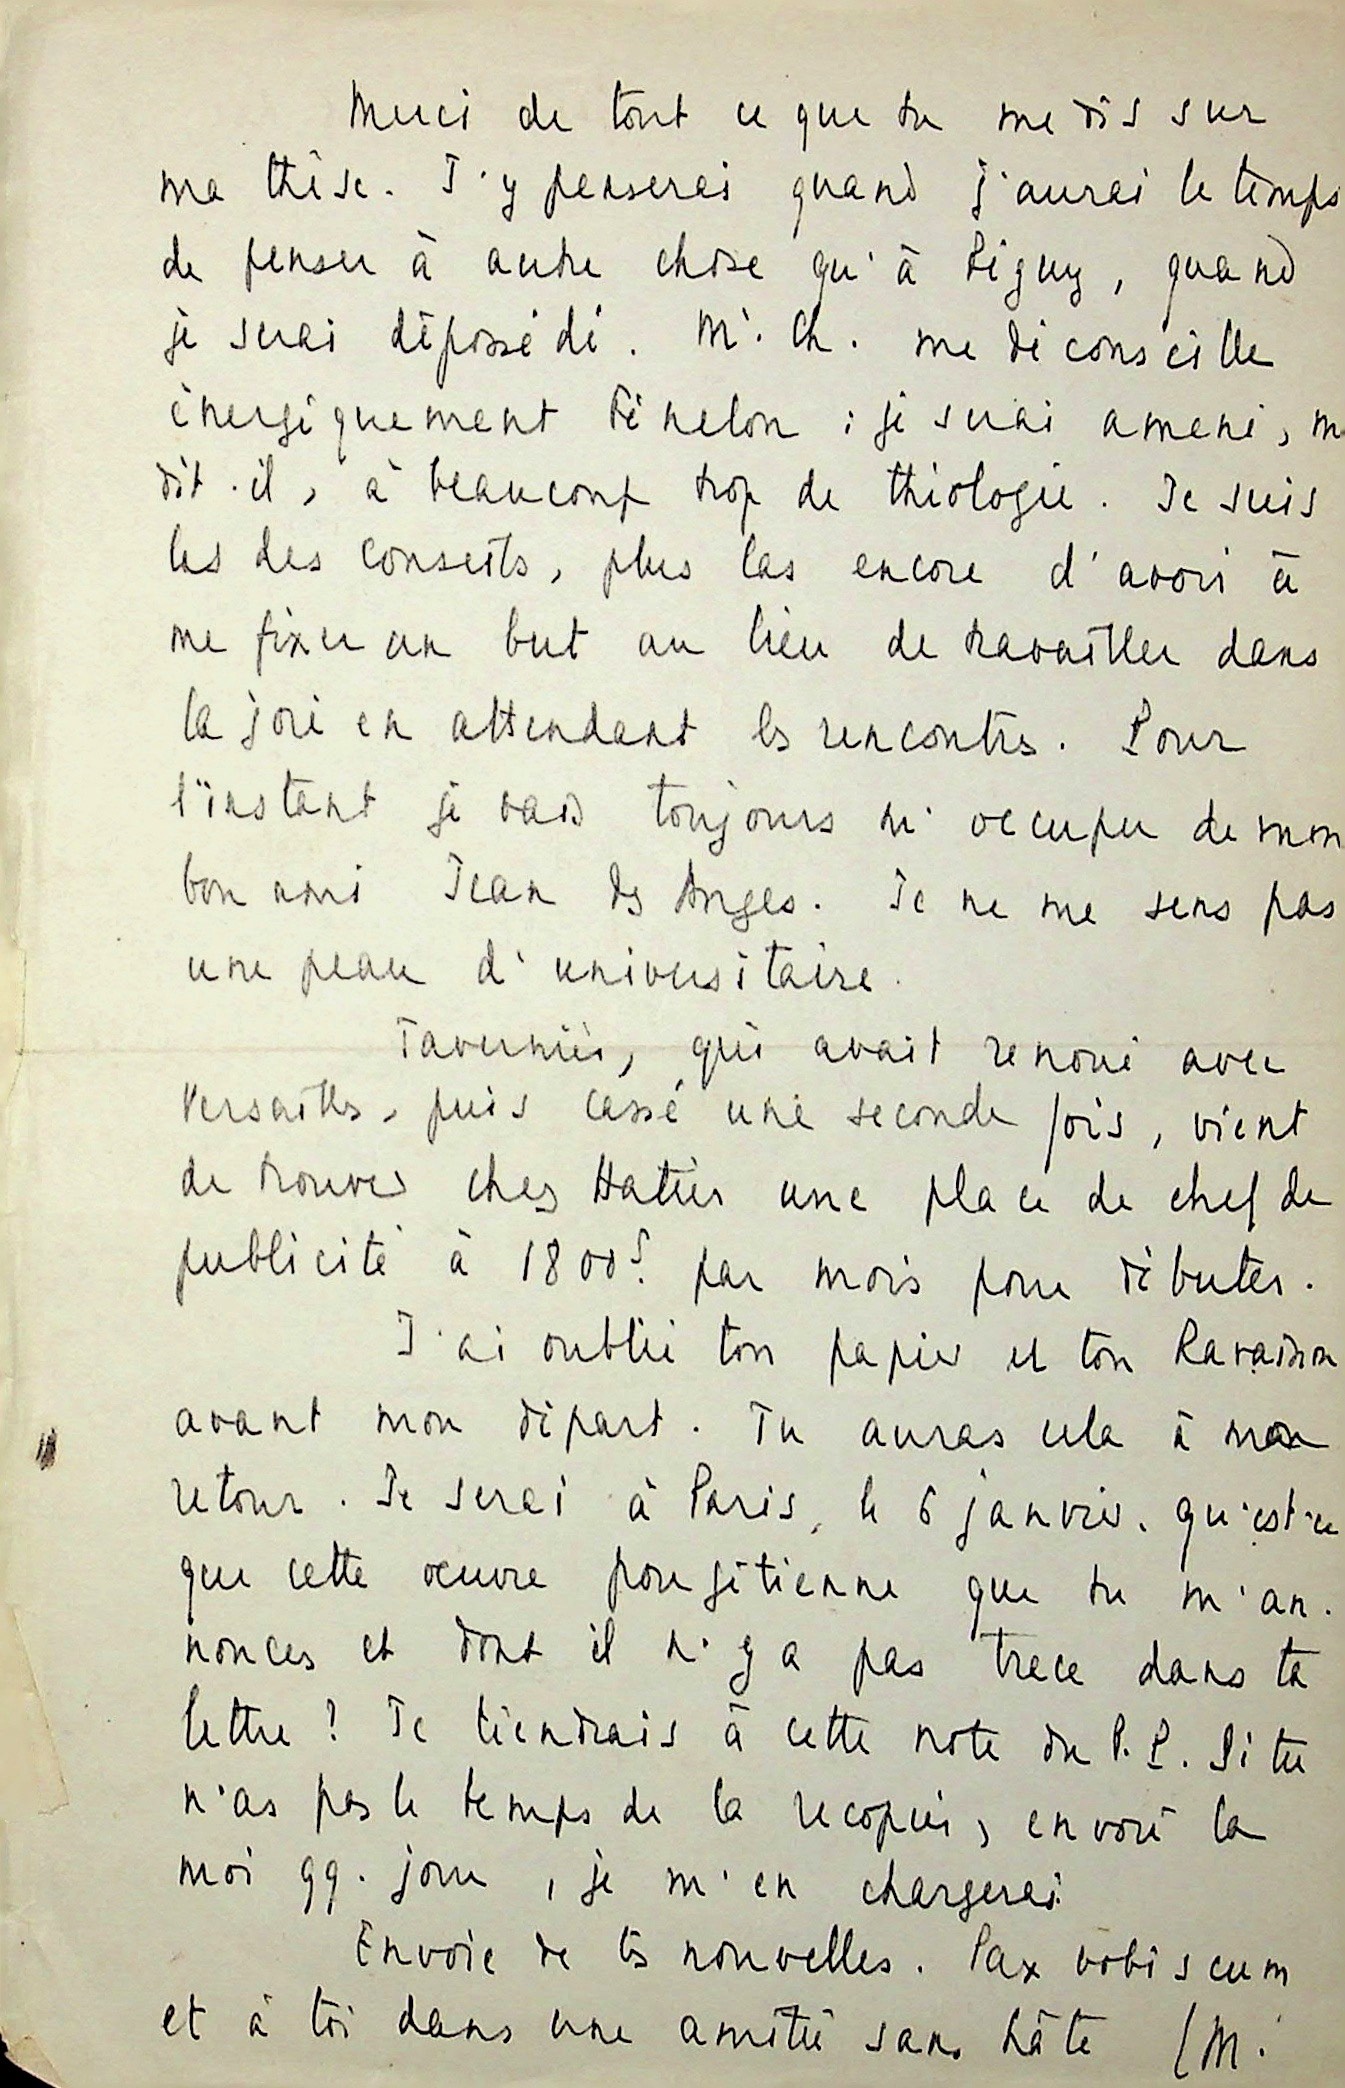 Merci de tout ce que tu me dis sur
ma thèse. J'y penserai quand j'aurai le temps
de penser à autre chose qu'à Péguy, quand
je serai dépossédé. Mr. Ch. me déconseille
énergiquement Fénelon : je serai amené, m
dit-il, à beaucoup trop de théologie. Je suis
las des conseils, plus las encore d'avoir à
me fixer un but au lieu de travailler dans
la joie en attendant les rencontres. Pour
l'instant je vais toujours m'occuper de mon
bon ami Jean des Anges. Je ne me sens pas
une peau d'universitaire.
Tavernier, qui avait renoué avec
Versailles, puis cassé une seconde fois, vient
de trouver chez Hatier une place de chef de
publicité à 1800 f. par mois pour débuter.
J'ai oublié ton papier et ton Ravaisson
avant mon départ. Tu auras cela à mon
retour. Je serai à Paris, le 6 janvier. Qu'est-ce
que cette œuvre pougétienne que tu m'an-
nonces et dont il n'y a pas trace dans ta
lettre ? Je tiendrais à cette note du P.P. Si tu
n'as pas le temps de la recopier, envoie la
moi qq. jour, je m'en chargerai.
Envoie de tes nouvelles. Pax vobiscum
et à toi dans une amitié sans hâte EM.